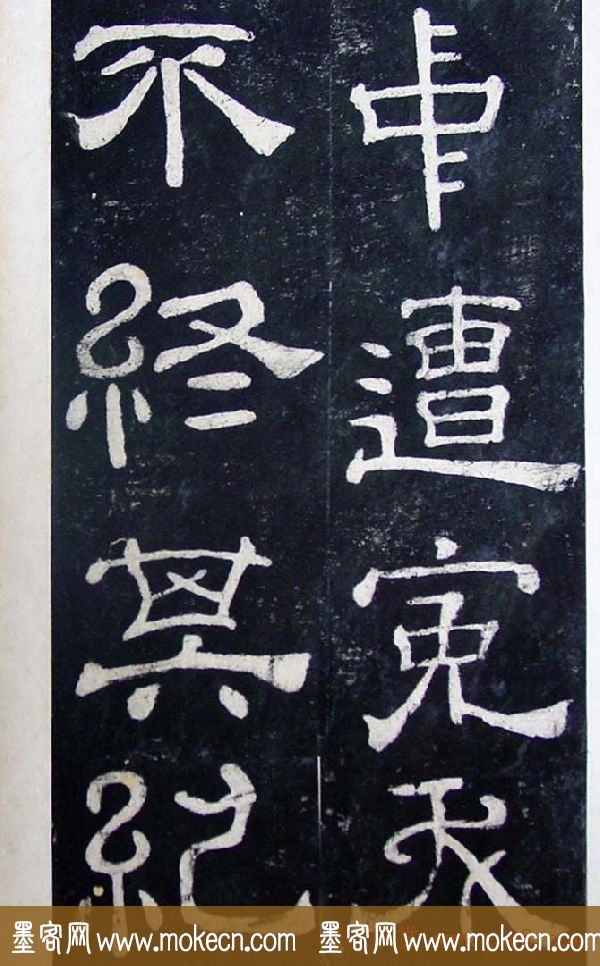 中遭寃夭
不終其紀
墨客网 www.mokecn.com 墨客网 www.mokecn.com